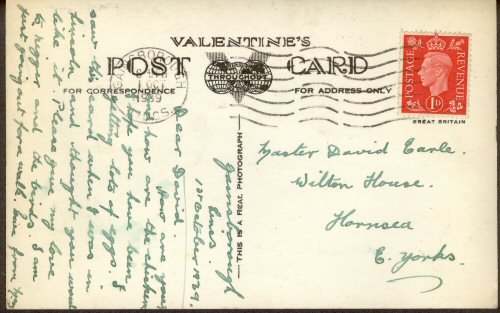 VALENTINE'S
POST CARD
THROUGHOUT
FOR CORRESPONDENCE
FOR ADDRESS ONLY
POSTAGE
REVENUE
1D
GREAT BRITAIN
1939
THIS IS A REAL PHOTOGRAPH
Master David Earle.
Wilton House.
Hornsea
E. Yorks.
Gainsborough
Lincs.
1st October 1939.
Dear David.
How are you
& how are the chickens
I hope you have been
getting lots of eggs. I
saw this card when I was in
Lincoln and thought you would
like it. Please give my love
to and the birds. I am
just going out for a walk. Love from